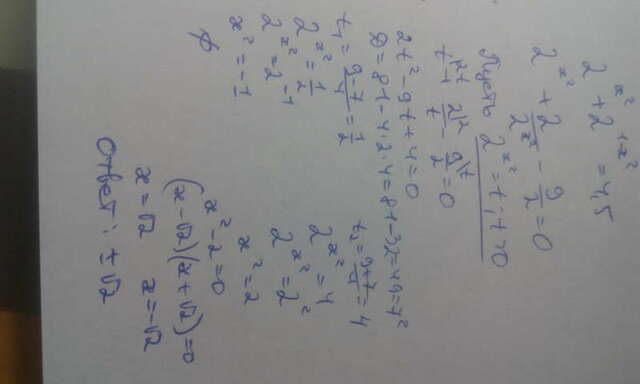 2^{x²} + 2^{1-x²} = 4,5
2^{x²} + 2/2^{x²} - 9/2 = 0
Пусть 2^{x²} = t, t>0
t + 2/t - 9/2 = 0
2t² - 9t + 4 = 0
D = 81 - 4·2·4 = 81 - 32 = 49 = 7²
t₁ = (9-7)/4 = 1/2
2^{x²} = 1/2
2^{x²} = 2^{-1}
x² = -1
∅
t₂ = (9+7)/4 = 4
2^{x²} = 4
2^{x²} = 2²
x² = 2
x² - 2 = 0
(x-√2)(x+√2) = 0
x = √2 x = -√2
Ответ: ±√2